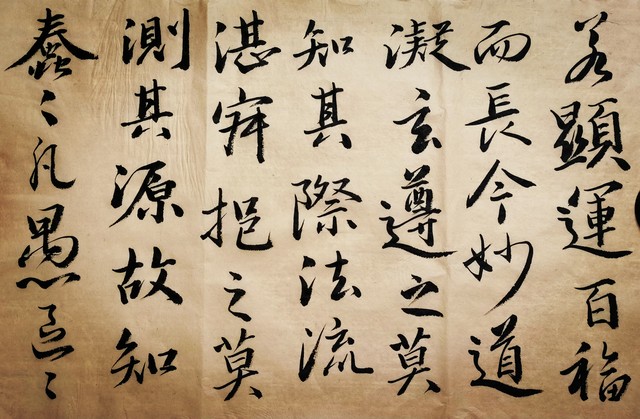 若顯運百福
而長今妙道
凝玄遵之莫
知其際法流
湛寂挹之莫
測其源故知
蠢〻凡愚區〻